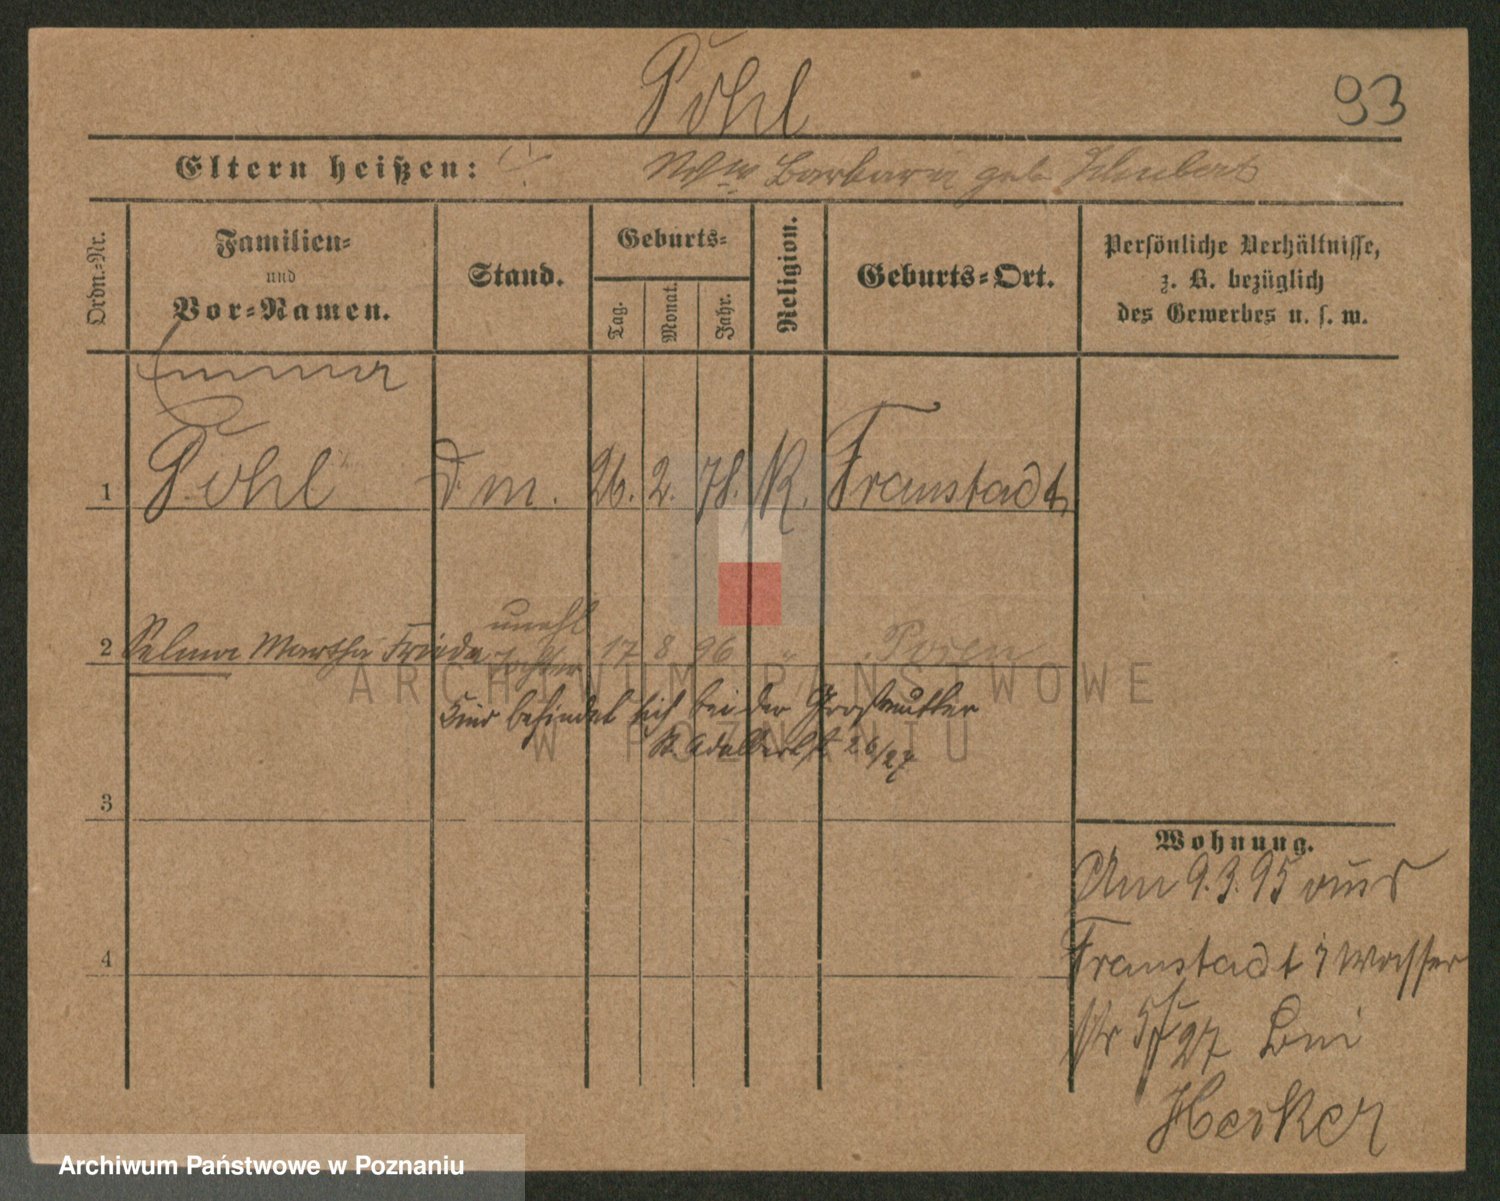 Pohl
93
Eltern heißen: Wwe Barbara geb Schubert
Ordn.-Nr.
Familien-
und
Vor-Namen.
Stand.
Geburts-
Tag.
Monat.
Jahr.
Religion.
Geburts-Ort.
Persönliche Verhältnisse,
z. B. bezüglich
des Gewerbes u. s. w.
Emma
1 Pohl D. m. 26. 2. 78. K. Fraustadt
unehl
2 Selma Martha Frieda Tochter 17 8 96 " Posen
Kind befindet sich bei der Großmutter
St Adalbertst 26/27
3
Wohnung.
Am 9.3.95 aus
4
Fraustadt Wasser
str 27 bei
Herker
ARCHIWUM PAŃSTWOWE
W POZNANIU
Archiwum Państwowe w Poznaniu